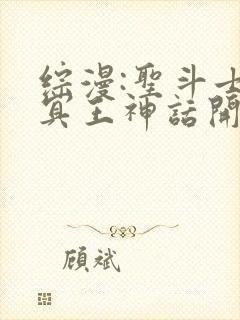 綜漫:聖斗士
冥王神話開
顧斌